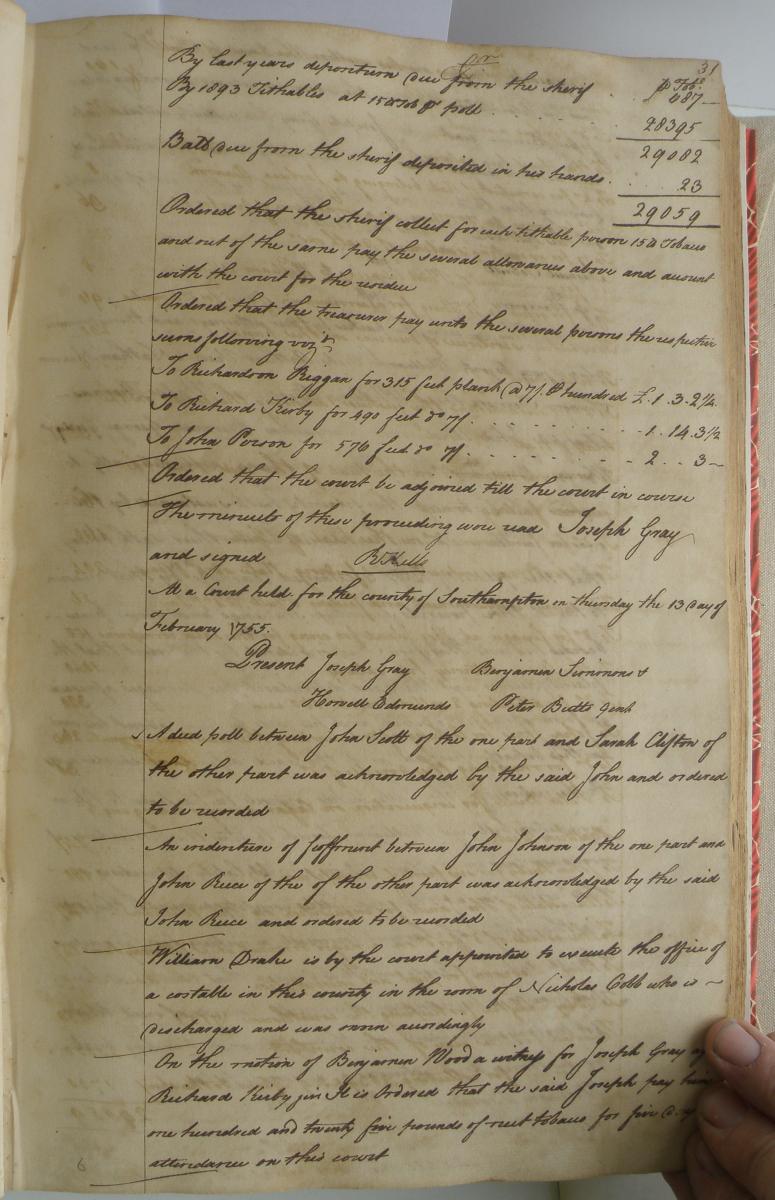 31
Cr
℔ Tobo
By last years deposition due from the sherif . 687
By 1893 Tithables at 15 lb Tob ℔ poll . . . . . 28395
29082
Ball due from the sherif deposited in his hands . . . 23
29059
Ordered that the sherif collect for each tithable person 15 lb Tobacco
and out of the same pay the several allowances above and account
with the court for the residue
Ordered that the treasurer pay unto the several persons the respective
sums following vizt
To Richardson Biggan for 315 feet plank @ 7/. ℔ hundred £. 1 . 3 . 2½.
To Richard Kirby for 490 feet do 7/. . . . . . . 1 . 14 . 3½
To John Person for 576 feet do 7/. . . . . . . 2 . . 3 –
Ordered that the court be adjorned till the court in course
The minuets of these proceeding were read Joseph Gray
and signed
At a Court held for the county of Southampton on thursday the 13 Day of
February 1755.
Present Joseph Gray Benjamen Simmons &
Howell Edmunds Peter Butts Gent
A deed poll between John Scott of the one part and Sarah Clifton of
the other part was acknowledged by the said John and ordered
to be recorded
An indenture of feoffment between John Johnson of the one part and
John Reece of the of the other part was acknowledged by the said
John Reece and ordered to be recorded
William Drake is by the court appointed to execute the office of
a costable in this county in the room of Nicholas Cobb who is ~
discharged and was sworn accordingly
On the motion of Benjamen Wood a witness for Joseph Gray
Richard Kirby junr It is Ordered that the said Joseph pay him
one hundred and twenty five pounds of neet tobacco for five days
attendance on this court
6